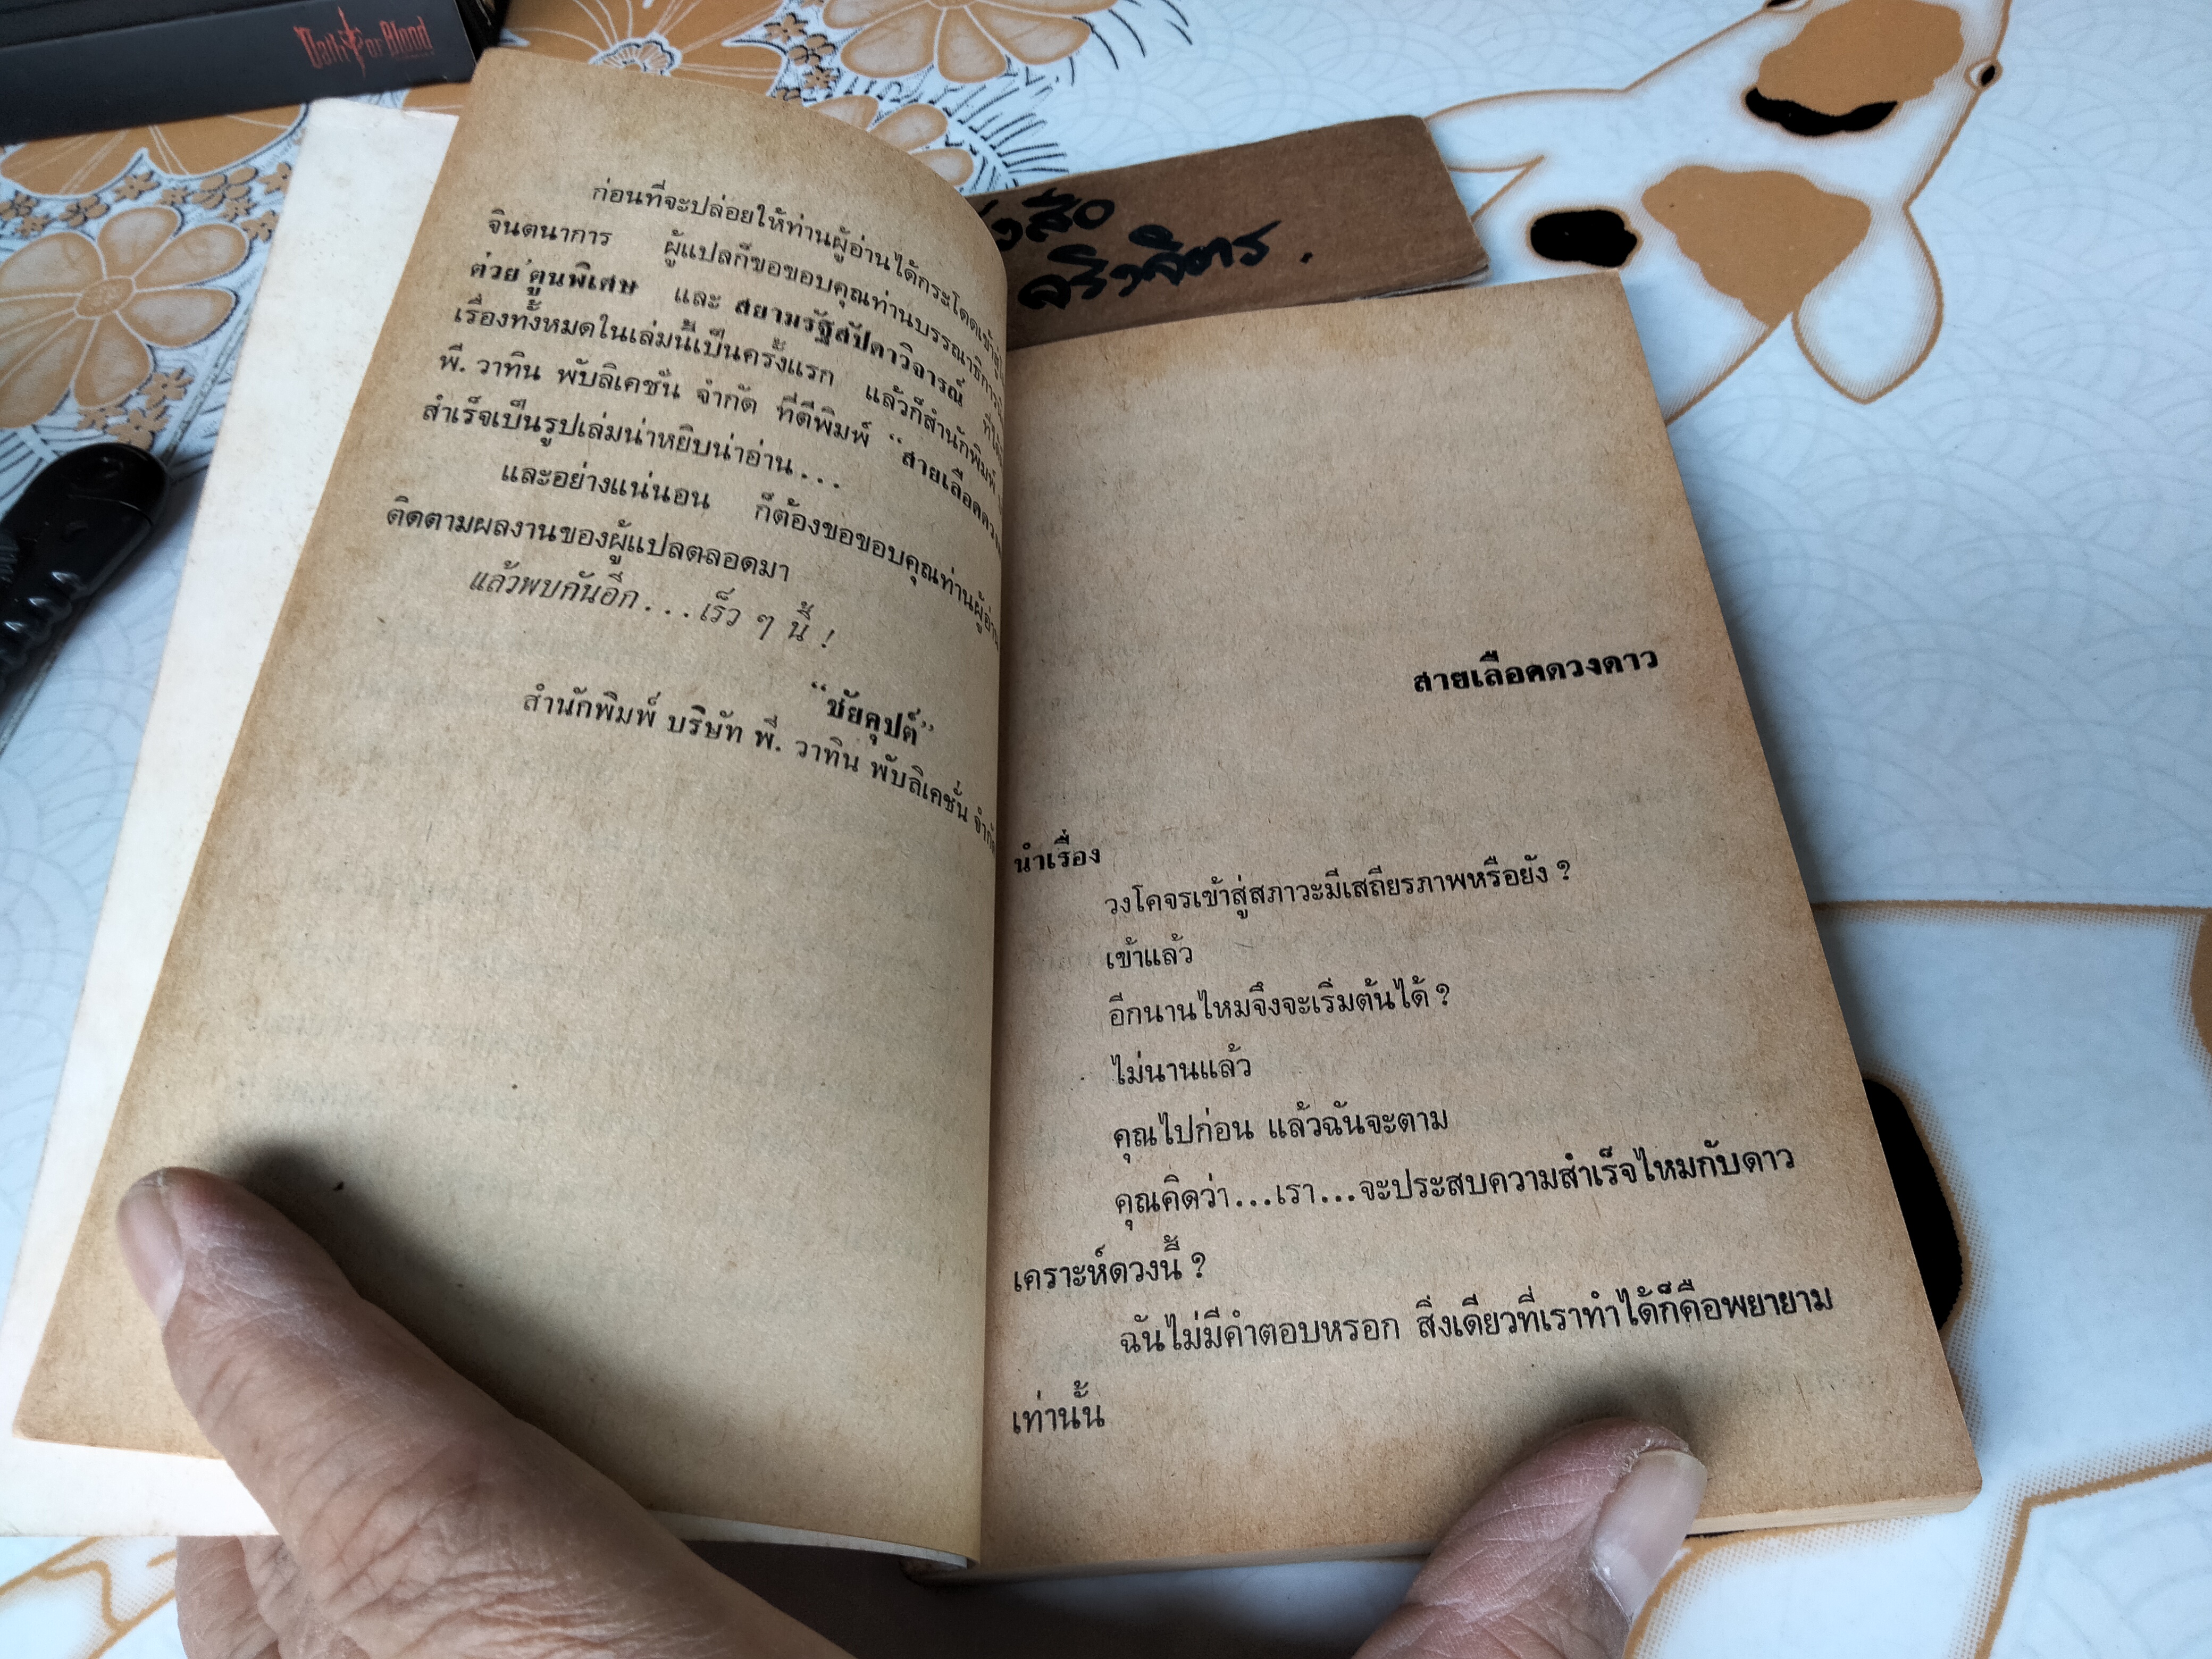 Oath for Blood
สือ
ก่อนที่จะปล่อยให้ท่านผู้อ่านได้กระโดดเข้าสู่
จินตนาการ ผู้แปลก็ขอขอบคุณท่านบรรณาธิการ
ต่วย'ตูนพิเศษ และ สยามรัฐสัปดาวิจารณ์ ที่ได้
เรื่องทั้งหมดในเล่มนี้เป็นครั้งแรก แล้วก็สำนักพิมพ์
พี. วาทิน พับลิเคชั่น จำกัด ที่ตีพิมพ์ “สายเลือดดวง
สำเร็จเป็นรูปเล่มน่าหยิบน่าอ่าน...
และอย่างแน่นอน ก็ต้องขอขอบคุณท่านผู้อ่าน
ติดตามผลงานของผู้แปลตลอดมา
แล้วพบกันอีก...เร็ว ๆ นี้ !
“ชัยคุปต์”
สำนักพิมพ์ บริษัท พี. วาทิน พับลิเคชั่น จำกัด
สายเลือดดวงดาว
นำเรื่อง
วงโคจรเข้าสู่สภาวะมีเสถียรภาพหรือยัง ?
เข้าแล้ว
อีกนานไหมจึงจะเริ่มต้นได้ ?
ไม่นานแล้ว
คุณไปก่อน แล้วฉันจะตาม
คุณคิดว่า...เรา...จะประสบความสำเร็จไหมกับดาว
เคราะห์ดวงนี้ ?
ฉันไม่มีคำตอบหรอก สิ่งเดียวที่เราทำได้ก็คือพยายาม
เท่านั้น